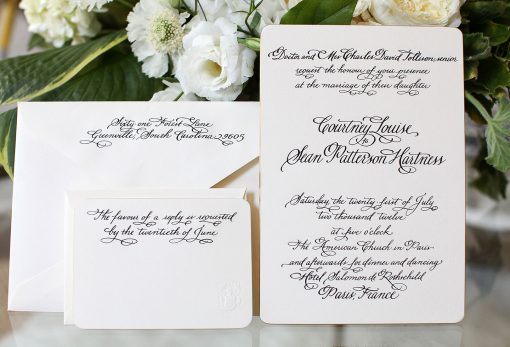 Sixty one Forest Lane
Greenville, South Carolina 29605
The favour of a reply is requested
by the twentieth of June
Doctor and Mrs Charles David Tollison senior
request the honour of your presence
at the marriage of their daughter
Courtney Louise
to
Sean Patterson Hartness
Saturday, the twenty first of July
two thousand twelve
at five o'clock
The American Church in Paris
and afterwards for dinner and dancing
Hôtel Salomon de Rothschild
Paris, France